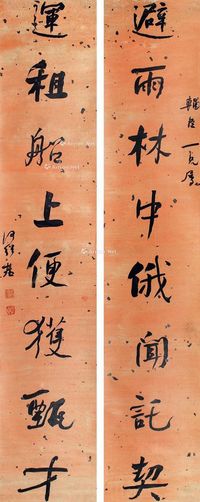 一兄屬
避雨林中俄聞託契
運租船上便獲甄才
何紹基